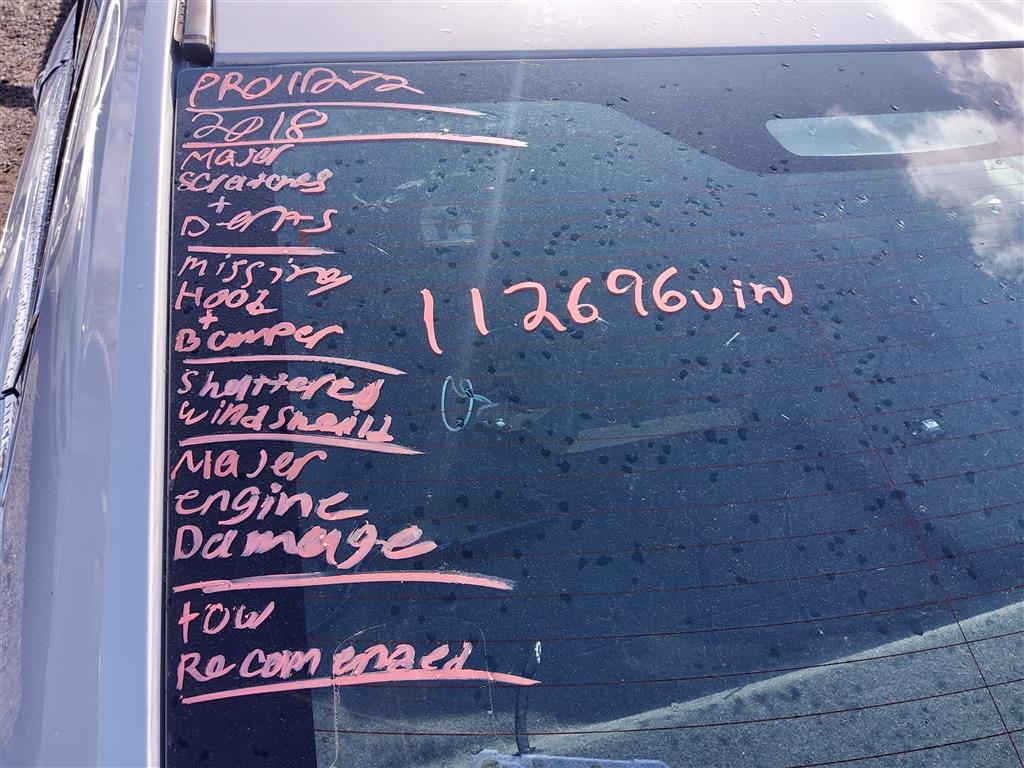 PRO11272
2018
Majer
scratches
+
Dents
Missing
Hood
+
Bumper
Shattered
windsheild
Majer
engine
Damage
tow
Recomended
112696vin